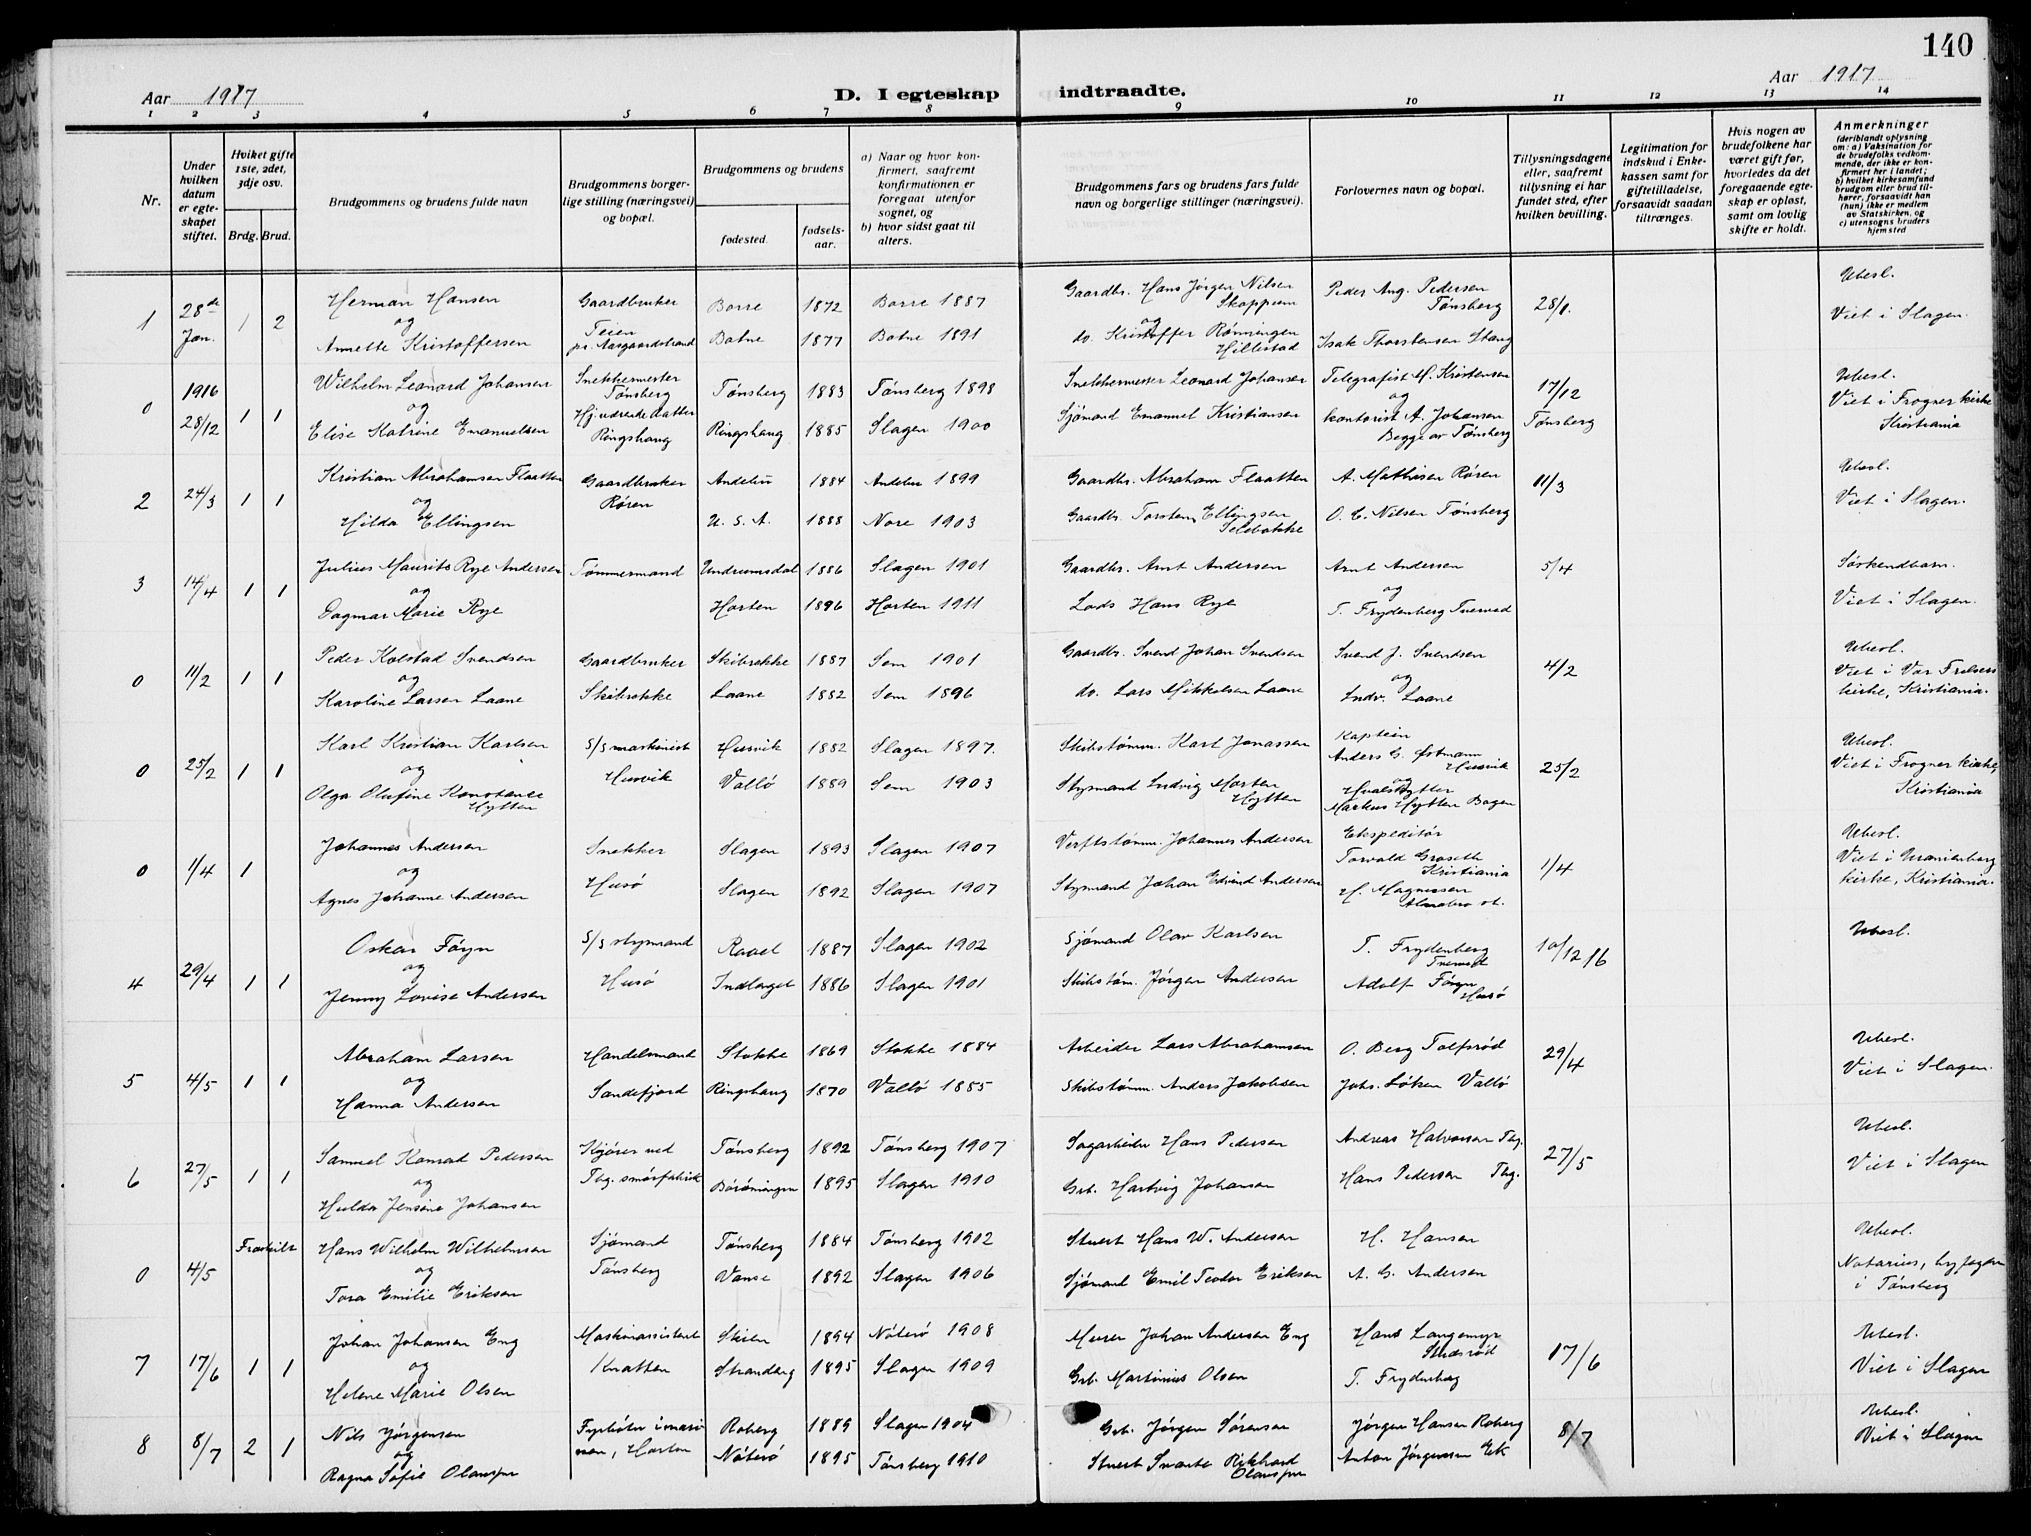 140
Aar 1917
D. I egteskap indtraadte.
Aar 1917
1 2 3 4 5 6 7 8 9 10 11 12 13 14
Nr.
Under hvilken datum er egteskapet stiftet.
Hviket gifte 1ste, 2det, 3dje osv.
Brdg. Brud.
Brudgommens og brudens fulde navn
Brudgommens borgerlige stilling (næringsvei) og bopæl.
Brudgommens og brudens
fødested.
fødselsaar.
a) Naar og hvor konfirmert, saafremt konfirmationen er foregaat utenfor sognet, og
b) hvor sidst gaat til alters.
Brudgommens fars og brudens fars fulde navn og borgerlige stillinger (næringsvei).
Forlovernes navn og bopæl.
Tillysningsdagene eller, saafremt tillysning ei har fundet sted, efter hvilken bevilling.
Legitimation for indskud i Enkekassen samt for giftetilladelse, forsaavidt saadan tiltrænges.
Hvis nogen av brudefolkene har været gift før, hvorledes da det foregaaende egteskap er opløst, samt om lovlig skifte er holdt.
Anmerkninger
(deriblandt oplysning om: a) Vaksination for de brudefolks vedkommende, der ikke er konfirmert her i landet; b) hvilket kirkesamfund brudgom eller brud tilhører, forsaavidt han (hun) ikke er medlem av Statskirken, og c) utensogns bruders hjemsted
1 28de Jan. 1 2 Herman Hansen og Annette Kristoffersen Gaardbruker Teien pr. Aasgaardstrand Borre 1872 Borre 1887 Botne 1877 Botne 1891 Gaardbr. Hans Jørgen Nilsen Skoppum og do. Kristoffer Rønningen Hillestad Peder Aug. Pedersen Tønsberg Isak Thorstensen Stang 28/1. Ubesl. Viet i Slagen
0 1916 28/12 1 1 Wilhelm Leonard Johansen og Elise Katrine Emanuelsen Snekkermester Tønsberg Hj.værende datter Ringshaug Tønsberg 1883 Tønsberg 1898 Ringshaug 1885 Slagen 1900 Snekkermester Leonard Johansen Sjömand Emanuel Kristiansen Telegrafist M. Kristensen og kontorist A. Johansen Begge av Tønsberg 17/12 Tønsberg Ubesl. Viet i Frogner kirke Kristiania
2 24/3 1 1 Kristian Abrahamsen Flaatten og Hilda Ellingsen Gaardbruker Røren Andebu 1884 Andebu 1899 U. S. A. 1888 Nore 1903 Gaardbr. Abraham Flaatten Gaardbr. Torsten Ellingsen A. Mathisen Røren O. C. Nilsen Tønsberg 11/3 Ubesl. Viet i Slagen.
3 14/4 1 1 Julius Maurits Rye Andersen og Dagmar Marie Rye Tømmermand Undrumsdal 1886 Slagen 1901 Horten 1896 Horten 1911 Gaardbr. Arnt Andersen Lods Hans Rye Arnt Andersen og T. Frydenberg Tverved 5/4 Søskendbarn. Viet i Slagen.
0 11/2 1 1 Peder Kolstad Svendsen og Karoline Larsen Laane Gaardbruker Skibrekke Skibrekke 1887 Sem 1901 Laane 1882 Sem 1896 Gaardbr. Svend Johan Svendsen do. Lars Mikkelsen Laane Svend J. Svendsen og Ludv. Laane 4/2 Ubesl. Viet i Vor Frelsers kirke, Kristiania.
0 25/2 1 1 Karl Kristian Karlsen og Olga Olufine Konstanse Hytten S/S maskinist Husvik Husvik 1882 Slagen 1897. Valló 1889 Sem 1903 Skibstømm. Karl Jonassen Styrmand Ludvig Morten Hytten Kaptein Anders G. Østmann Husvik og Markus Hytten Bogen 25/2 Ubesl. Viet i Frogner kirke, Kristiania
0 1/4 1 Johannes Andersen og Agnes Johanne Andersen Snekker Husö Slagen 1893 Slagen 1907 Slagen 1892 Slagen 1907 Verftstømm. Johannes Andersen Styrmand Johan Edvind Andersen Ekspeditör Torvald Groseth Kristiania H. Magnussen 1/4 Ubesl. Viet i Uranienborg kirke, Kristiania.
4 29/4 1 1 Oskar Föyn og Jenny Lovise Andersen S/S styrmand Husö Raael 1887 Slagen 1902 Indlaget 1886 Slagen 1901 Sjömand Olav Karlsen Skibstöm. Jörgen Andersen T. Frydenberg Tverved Adolf Föyn Husö 10/12 16 Ubesl.
5 4/5 1 1 Abraham Larsen og Hanna Andersen Handelsmand Sandefjord Stokke 1869 Stokke 1884 Ringshaug 1870 Valló 1885 Arbeider Lars Abrahamsen Skibstømm. Anders Jakobsen O. Berg Tolfsröd Johs. Löken Vallö 29/4 Ubesl. Viet i Slagen.
6 27/5 1 1 Samuel Konrad Pedersen og Hulda Jensine Johansen Kjører ved Tbg. smörfabrik Tønsberg 1892 Tønsberg 1907 1895 Slagen 1910 Sagarbeider Hans Pedersen Grb. Hartvig Johansen Andreas Halvorsen Tbg. Hans Pedersen Tbg. 27/5 Ubesl. Viet i Slagen
0 4/5 Fraskilt Hans Wilhelm Wilhelmsen og Tora Emilie Eriksen Sjömand Tønsberg Tønsberg 1884 Tønsberg 1902 Vanse 1892 Slagen 1906 Stuert Hans W. Andersen Sjömand Emil Teodor Eriksen H. Hansen A. G. Andersen Ubesl. Notarius, byfogden i Tønsberg
7 17/6 1 1 Johan Johansen Eng og Helene Marie Olsen Maskinassistent Knatten Skien 1894 Nöterö 1908 Strandeng 1895 Slagen 1909 Murer Johan Andersen Eng Grb. Martinius Olsen Hans Langemyr T. Frydenberg 17/6 Ubesl. Viet i Slagen
8 8/7 2 1 Nils Jørgensen og Ragna Sofie Olausen Fyrböter i marinen, Horten Roberg 1889 Slagen 1904 Nöterö 1895 Tønsberg 1910 Grb. Jørgen Sørensen Stuert Svarte Rikhard Olausen Jørgen Hansen Roberg Anton Jørgensen Ek 8/7 Ubesl. Viet i Slagen